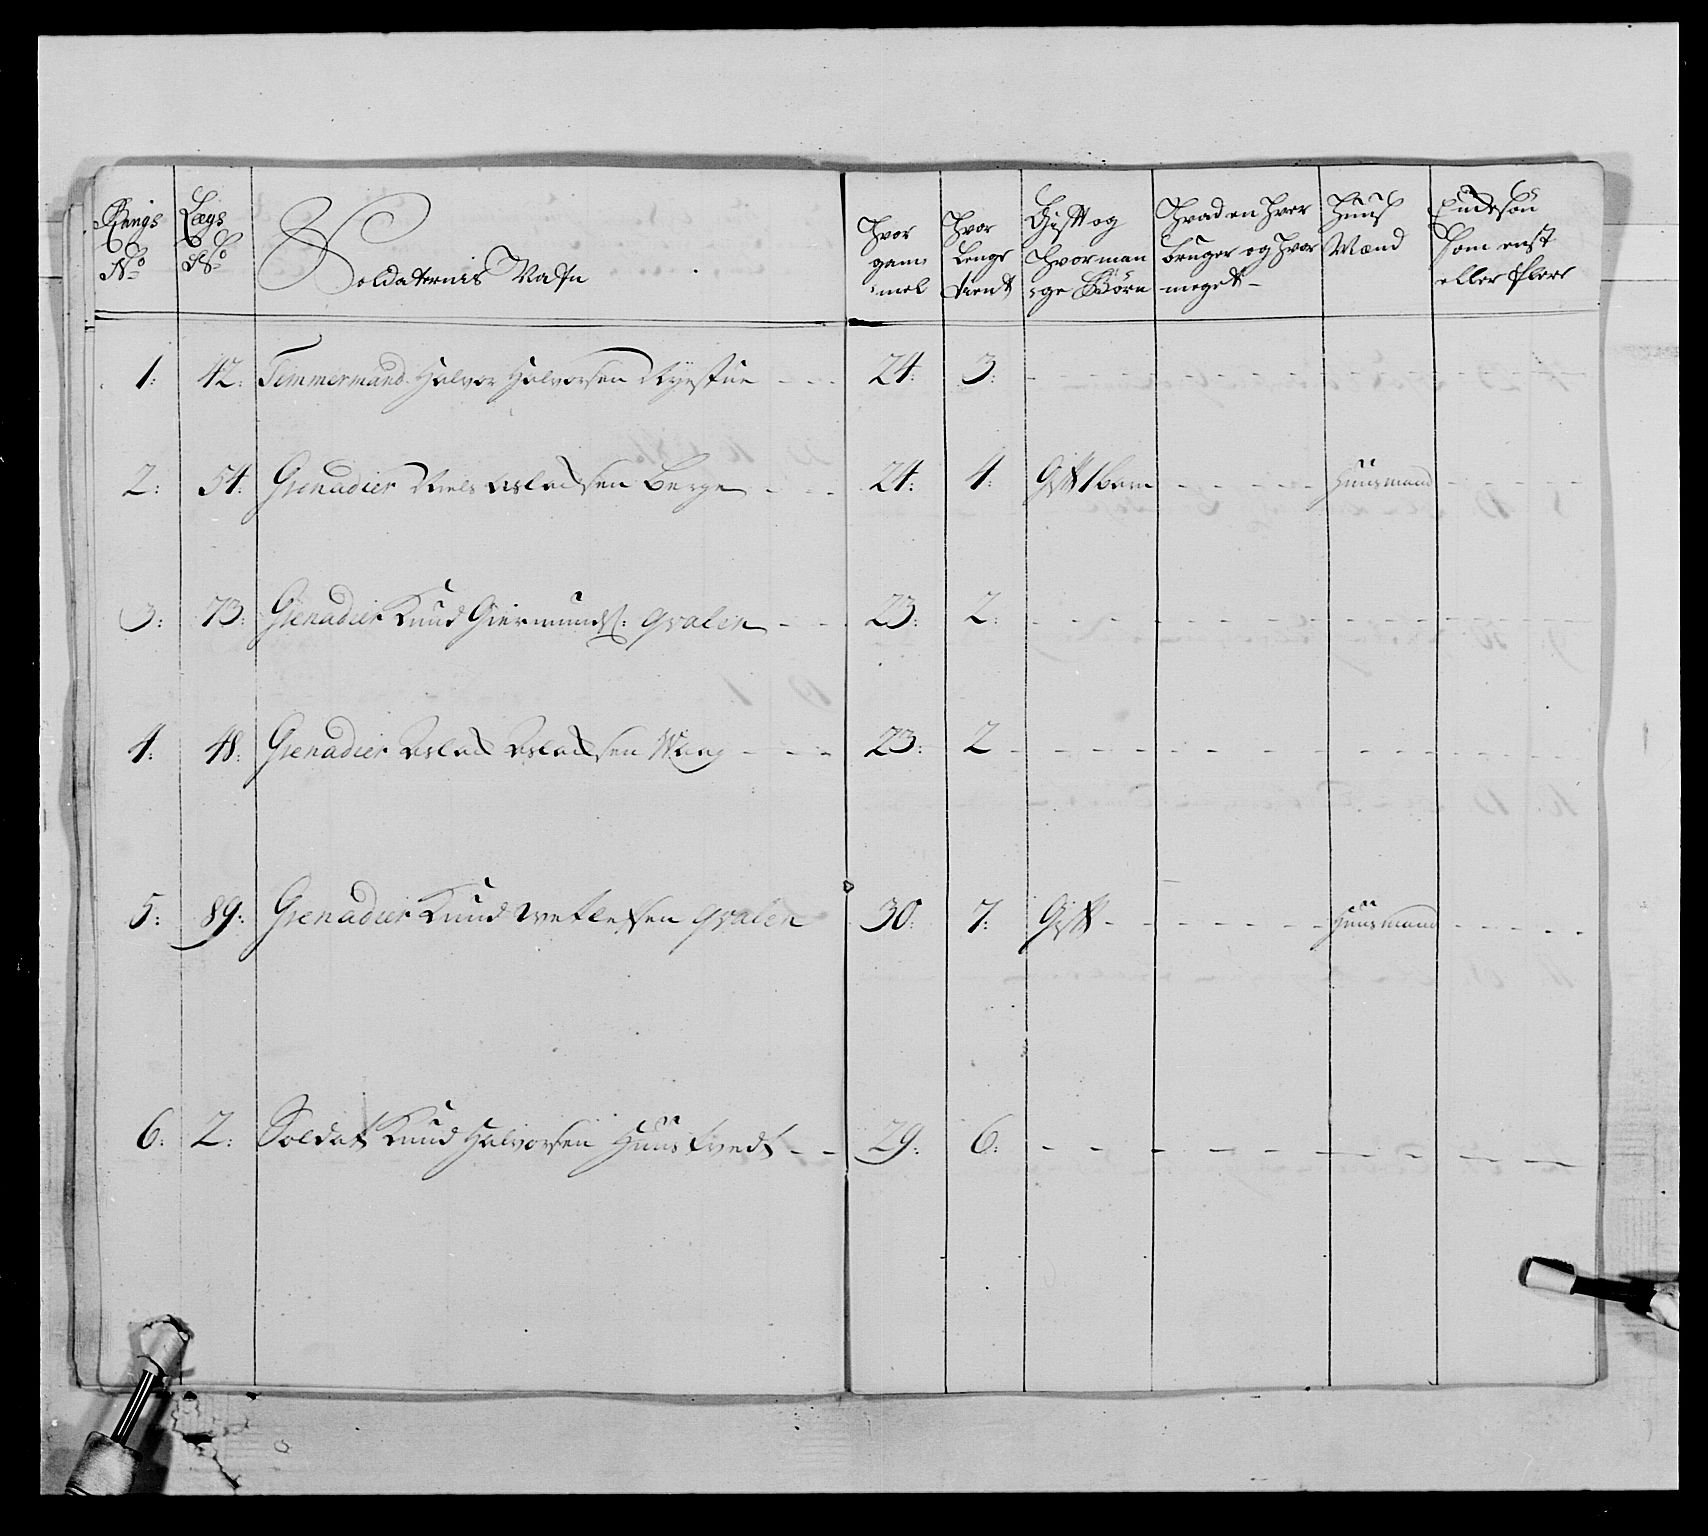 Rangs No
Lægs No
Soldaternis Nafn
Hvor gam¬mel
Hvor Lenge tient
Gift og Hvor man¬ge Börn
Hvad en Hver bruger og Hvor meget
Huus Mænd
som enst eller flere
1: 42: Timmermand Halvor Halvorsen Ryestue - - - 24: 3:
2: 54: Grenadier Niels Aslachsen Berge - - - 24: 4: Gift 1 barn Huusmand
3: 73: Grenadier Knud Giermunds: Qvalen - - - 23: 2:
4: 48: Grenadier Aslach Aslachsen Wang - - - 23: 2
5: 89: Grenadier Knud Wetlesen Qvalen 30: 7: Gift Huusmand
6: 2: Soldat Knud Halvorsen Huustvedt - - 29: 6: